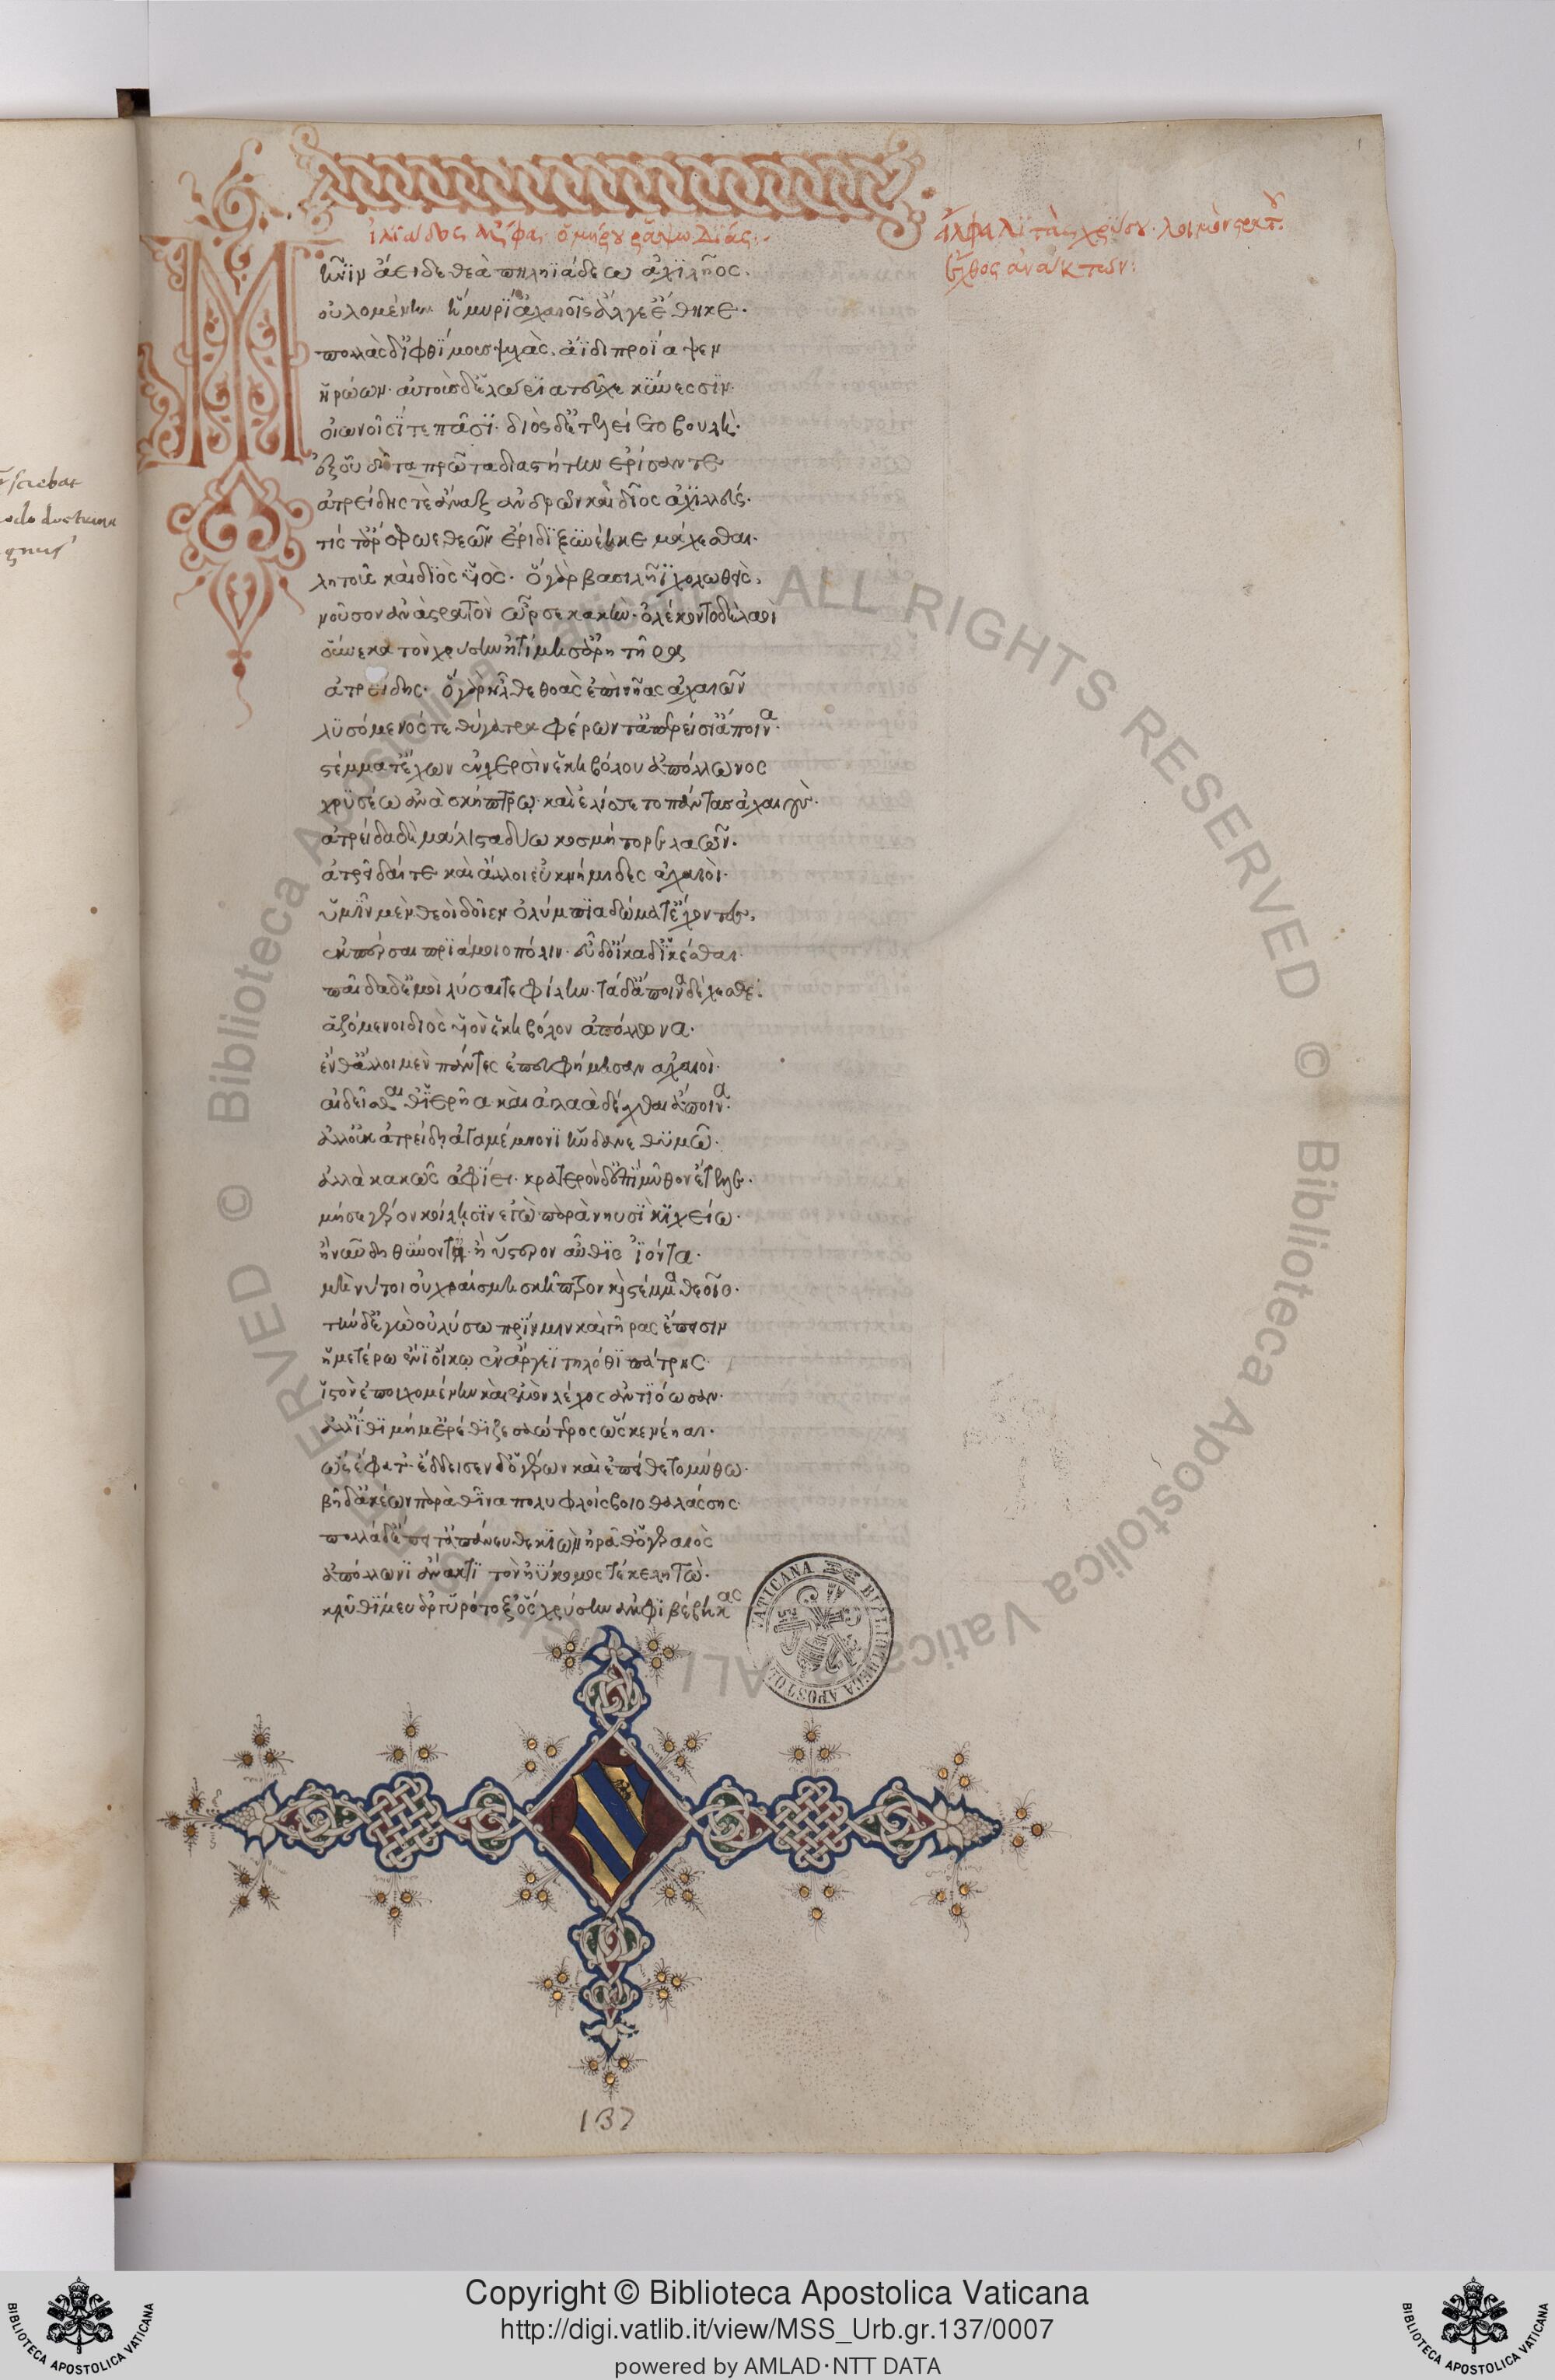 ἰλιάδος ἄλφα ὁμήρου ῥαψωδίας:
ἄλφα λιτὰς χρύσου· λοιμὸν στρατοῦ·
ἔχθος ἀνάκτων:
Μῆνιν ἄειδε θεὰ πηληϊάδεω ἀχιλῆος·
οὐλομένην ἣ μυρί ἀχαιοῖς ἄλγε ἔθηκε·
πολλὰς δ ἰφθίμους ψυχὰς ἄϊδι προΐαψεν
ἡρώων· αὐτοὺς δὲ ἑλώρια τεῦχε κύνεσσιν
οἰωνοῖσί τε πᾶσι· διὸς δ ἐτελείετο βουλή·
ἐξ οὗ δὴ τὰ πρῶτα διαστήτην ἐρίσαντε
ἀτρείδης τὲ ἄναξ ἀνδρῶν καὶ δῖος ἀχιλλεύς·
τίς τάρ σφωε θεῶν ἔριδι ξυνέηκε μάχεσθαι·
λητοῦς καὶ διὸς υἱός· ὁ γὰρ βασιλῆϊ χολωθεὶς
νοῦσον ἀνὰ στρατὸν ὦρσε κακὴν· ὀλέκοντο δὲ λαοὶ
οὕνεκα τὸν χρύσην ἠτίμησ ἀρητῆρα
ἀτρείδης· ὁ γὰρ ἦλθε θοὰς ἐπὶ νῆας ἀχαιῶν
λυσόμενός τε θύγατρα φέρων τ ἀπερείσι ἄποινα·
στέμματ ἔχων ἐν χερσὶν ἑκηβόλου ἀπόλλωνος
χρυσέω ἀνὰ σκήπτρω· καὶ ἐλίσσετο πάντας ἀχαιοὺς·
ἀτρείδα δὲ μάλιστα δύω κοσμήτορε λαῶν·
ἀτρεῖδαί τε καὶ ἄλλοι εὐκνήμιδες ἀχαιοὶ·
ὑμῖν μὲν θεοὶ δοῖεν ὀλύμπια δώματ ἔχοντες
ἐκπέρσαι πριάμοιο πόλιν· εὖ δ οἴκαδ ἱκέσθαι·
παῖδα δὲ μοὶ λύσαιτε φίλην· τὰ δ ἄποινα δέχεσθε·
ἁζόμενοι διὸς υἱὸν ἑκηβόλον ἀπόλλωνα·
ἔνθ ἄλλοι μὲν πάντες ἐπευφήμησαν ἀχαιοὶ·
αἰδεῖσθαί θ ἱερῆα καὶ ἀγλαὰ δέχθαι ἄποινα·
ἀλλ οὐκ ἀτρείδη ἀγαμέμνονι ἥνδανε θυμῶ·
ἀλλὰ κακῶς ἀφίει· κρατερὸν δ ἐπὶ μῦθον ἔτελλε·
μή σε γέρον κοίλησιν ἐγὼ παρὰ νηυσὶ κιχείω·
ἢ νῦν δηθύνοντα ἢ ὕστερον αὖθις ἰόντα·
μὴ νύ τοι οὐ χραίσμη σκῆπτρον καὶ στέμμα θεοῖο·
τὴν δ ἐγὼ οὐ λύσω πρίν μιν καὶ γῆρας ἔπεισιν
ἡμετέρω ἐνὶ οἴκω ἐν ἄργεϊ τηλόθι πάτρης·
ἱστὸν ἐποιχομένην καὶ ἐμὸν λέχος ἀντιόωσαν·
ἀλλ ἴθι μή μ ἐρέθιζε σαώτερος ὥς κε νέηαι·
ὣς ἔφατ ἔδδεισεν δ ὁ γέρων καὶ ἐπείθετο μύθω·
βῆ δ ἀκέων παρὰ θῖνα πολυφλοίσβοιο θαλάσσης·
πολλὰ δ ἔπειτ ἀπάνευθε κιὼν ἠρᾶθ ὁ γεραιὸς
ἀπόλλωνι ἄνακτι τὸν ἠΰκομος τέκε λητὼ·
κλῦθί μευ ἀργυρότοξ ὃς χρύσην ἀμφιβέβηκας
137
Copyright © Biblioteca Apostolica Vaticana
http://digi.vatlib.it/view/MSS_Urb.gr.137/0007
powered by AMLAD·NTT DATA